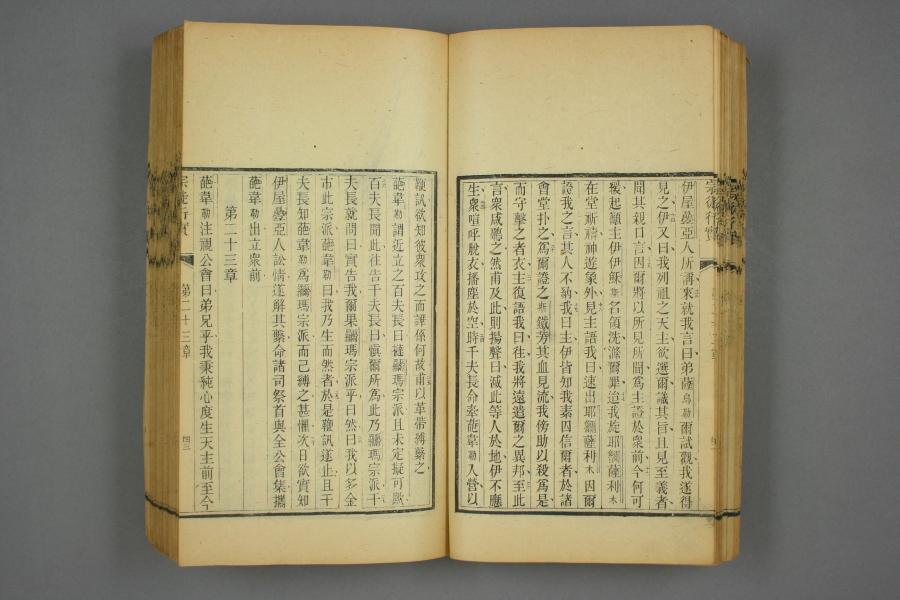 伊屋亞人所講來就我言曰弟薩烏勒爾試觀我遂得
見之伊又曰我列祖之天主欲選爾識其旨且見至義者
聞其親口言因爾將以所見所聞為主證於衆前今何可
緩起籲主伊伊穌斯名領洗滌爾罪迨我旋耶嚼薩利木
在堂祈禱神遊象外見主語我曰速出耶嚼薩利木因爾
證我之言其人不納我曰主伊皆知我素囚信爾者於諸
會堂扑之為爾證之斯鐵芳其血見流我傍助以殺為是
而守擊之者衣主復語我曰往我將遠遣爾之異邦至此
言衆咸聽之然甫及此則揚聲曰滅此等人於地伊不應
生衆喧呼脫衣播塵於空時千夫長命牽葩韋勒入營以
鞭訊欲知彼衆攻之而譁係何故甫以革帶縛繫之
葩韋勒謂近立之百夫長曰撻羅瑪宗派且未定擬可歟
百夫長聞此往告千夫長曰慎爾所為此乃羅瑪宗派千
夫長就問曰實告我爾果羅瑪宗派乎曰然曰我以多金
市此宗派葩韋勒曰我乃生而然者於是鞭訊遂止且千
夫長知葩韋勒為羅瑪宗派而己縛之甚懼次日欲實知
伊屋亞人訟情遂解其繫命諸司祭首與全公會集攜
葩韋勒出立衆前
第二十三章
葩韋勒注視公會曰弟兄乎我秉純心度生天主前至今
宗徒行實 第二十三章 四三